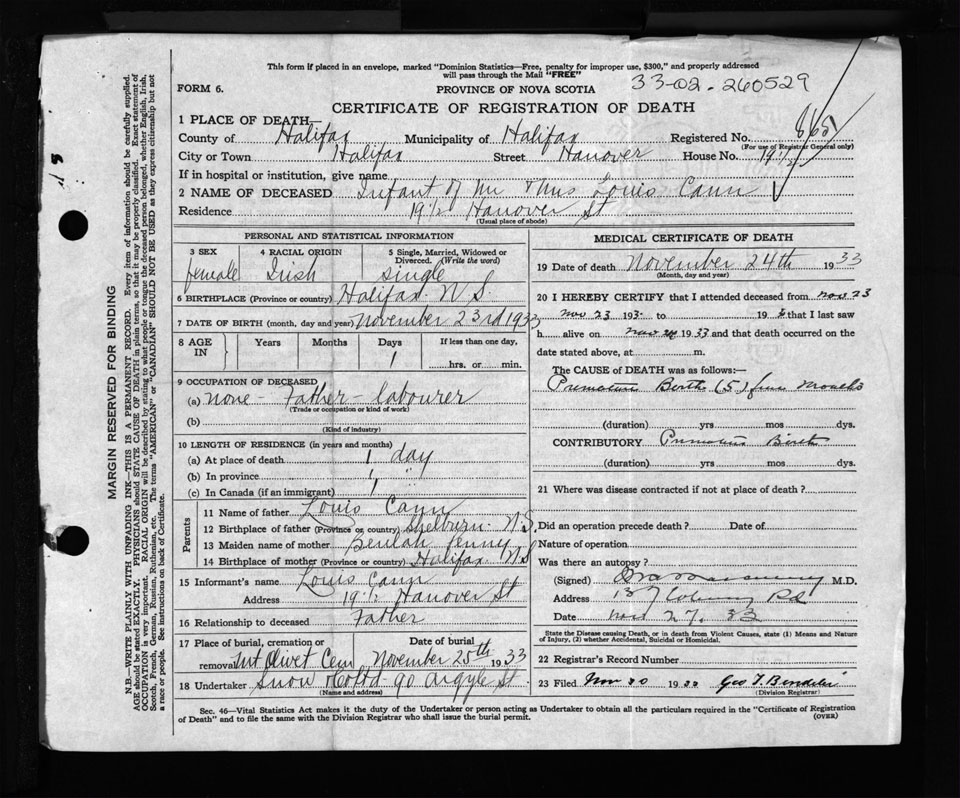 This form if placed in an envelope, marked "Dominion Statistics—Free, penalty for improper use, $300," and properly addressed
will pass through the Mail "FREE"
33-02-260529
FORM 6.
PROVINCE OF NOVA SCOTIA
CERTIFICATE OF REGISTRATION OF DEATH
1 PLACE OF DEATH—
County of Halifax Municipality of Halifax Registered No.
(For use of Registrar General only)
City or Town Halifax Street Hanover House No. 19½
If in hospital or institution, give name
2 NAME OF DECEASED Infant of Mr & Mrs Louis Cann
Residence 19½ Hanover St
(Usual place of abode)
PERSONAL AND STATISTICAL INFORMATION
3 SEX 4 RACIAL ORIGIN 5 Single, Married, Widowed or Divorced. (Write the word)
female Irish single
6 BIRTHPLACE (Province or country) Halifax N.S.
7 DATE OF BIRTH (month, day and year) November 23rd 1933
8 AGE IN Years Months Days If less than one day,
1 hrs. or min.
9 OCCUPATION OF DECEASED
(a) none - Father - labourer
(Trade or occupation or kind of work)
(b)
(Kind of industry)
10 LENGTH OF RESIDENCE (in years and months)
(a) At place of death 1 day
(b) In province 1 "
(c) In Canada (if an immigrant) 1
Parents
11 Name of father Louis Cann
12 Birthplace of father (Province or country) Shelburn N.S.
13 Maiden name of mother Beulah
14 Birthplace of mother (Province or country) Halifax N.S
15 Informant's name Louis Cann
Address 19½ Hanover St
16 Relationship to deceased Father
17 Place of burial, cremation or removal Mt Olivet Cem Date of burial November 25th 1933
18 Undertaker Snow & Co Ltd 90 Argyle St
(Name and address)
MEDICAL CERTIFICATE OF DEATH
19 Date of death November 24th 1933
(Month, day and year)
20 I HEREBY CERTIFY that I attended deceased from Nov 23
Nov 23 193 to 19 that I last saw
h alive on Nov 1933 and that death occurred on the
date stated above, at m.
The CAUSE of DEATH was as follows:
Premature Birth (5) five Months
(duration) yrs mos dys.
CONTRIBUTORY Premature Birth
(duration) yrs mos dys.
21 Where was disease contracted if not at place of death?
Did an operation precede death? Date of
Nature of operation
Was there an autopsy?
(Signed) M.D.
Address 137 Rd
Date Nov 27. 33
State the Disease causing Death, or in death from Violent Causes, state (1) Means and Nature of Injury, (2) whether Accidental, Suicidal or Homicidal.
22 Registrar's Record Number
23 Filed Nov 30 1933 Geo T.
(Division Registrar)
Sec. 46—Vital Statistics Act makes it the duty of the Undertaker or person acting as Undertaker to obtain all the particulars required in the "Certificate of Registration
of Death" and to file the same with the Division Registrar who shall issue the burial permit.
(OVER)
MARGIN RESERVED FOR BINDING
N.B.—WRITE PLAINLY WITH UNFADING INK—THIS IS A PERMANENT RECORD. Every item of information should be carefully supplied.
AGE should be stated EXACTLY. PHYSICIANS should STATE CAUSE OF DEATH in plain terms, so that it may be properly classified. Exact statement of
OCCUPATION is very important. RACIAL ORIGIN will be described by stating to what people or tongue the deceased person belonged, whether English, Irish,
Scotch, French, German, Russian, Ruthenian, etc. The terms "AMERICAN" or "CANADIAN" SHOULD NOT BE USED as they express citizenship but not
a race or people. See instructions on back of Certificate.